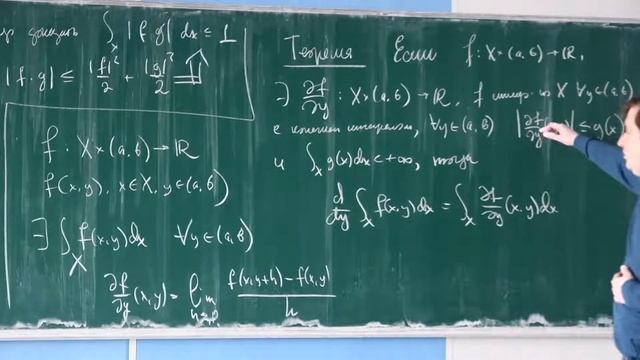 ∫_X |f·g| dx ≤ 1
|f·g| ≤ |f|²/2 + |g|²/2
f: X×(a,b)→ℝ
f(x,y), x∈X, y∈(a,b)
∃ ∫_X f(x,y)dx ∀y∈(a,b)
∂f/∂y (x,y) = lim_{h→0} (f(x,y+h)−f(x,y))/h
Теорема Если f: X×(a,b)→ℝ,
∃ ∂f/∂y : X×(a,b)→ℝ, f интегр. на X ∀y∈(a,b)
с конечным интегралом, ∀y∈(a,b) |∂f/∂y| ≤ g(x)
и ∫_X g(x)dx<+∞, тогда
d/dy ∫_X f(x,y)dx = ∫_X ∂f/∂y (x,y)dx